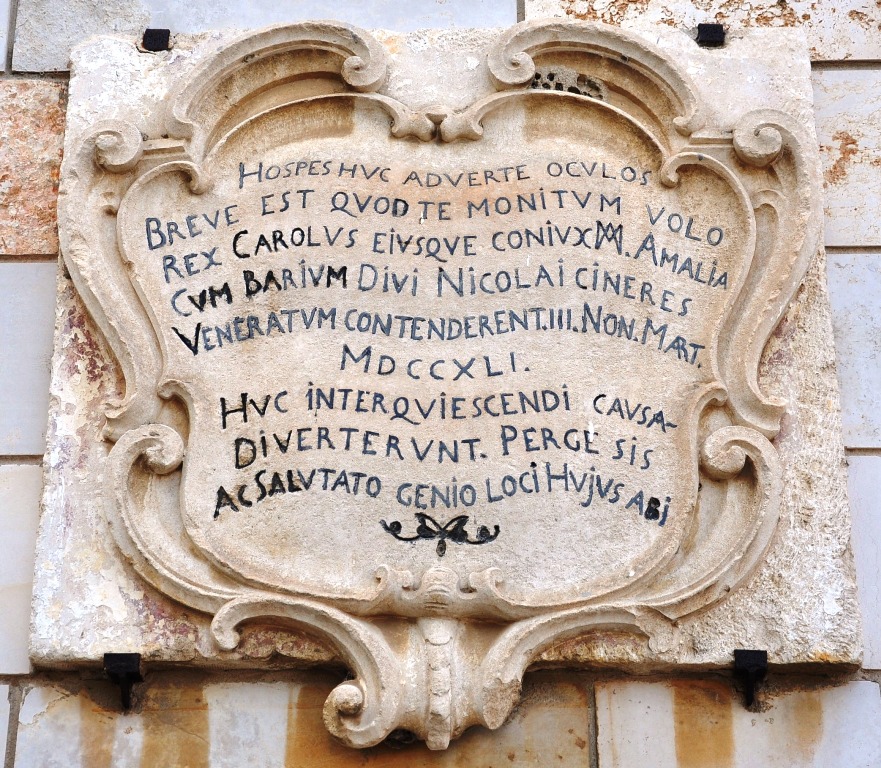 HOSPES HVC ADVERTE OCVLOS
BREVE EST QVOD TE MONITVM VOLO
REX CAROLVS EIVSQVE CONIVX M. AMALIA
CVM BARIVM DIVI NICOLAI CINERES
VENERATVM CONTENDERENT. III. NON. MART.
MDCCXLI.
HVC INTERQVIESCENDI CAVSA-
DIVERTERVNT. PERGE SIS
AC SALVTATO GENIO LOCI HUJVS ABJ